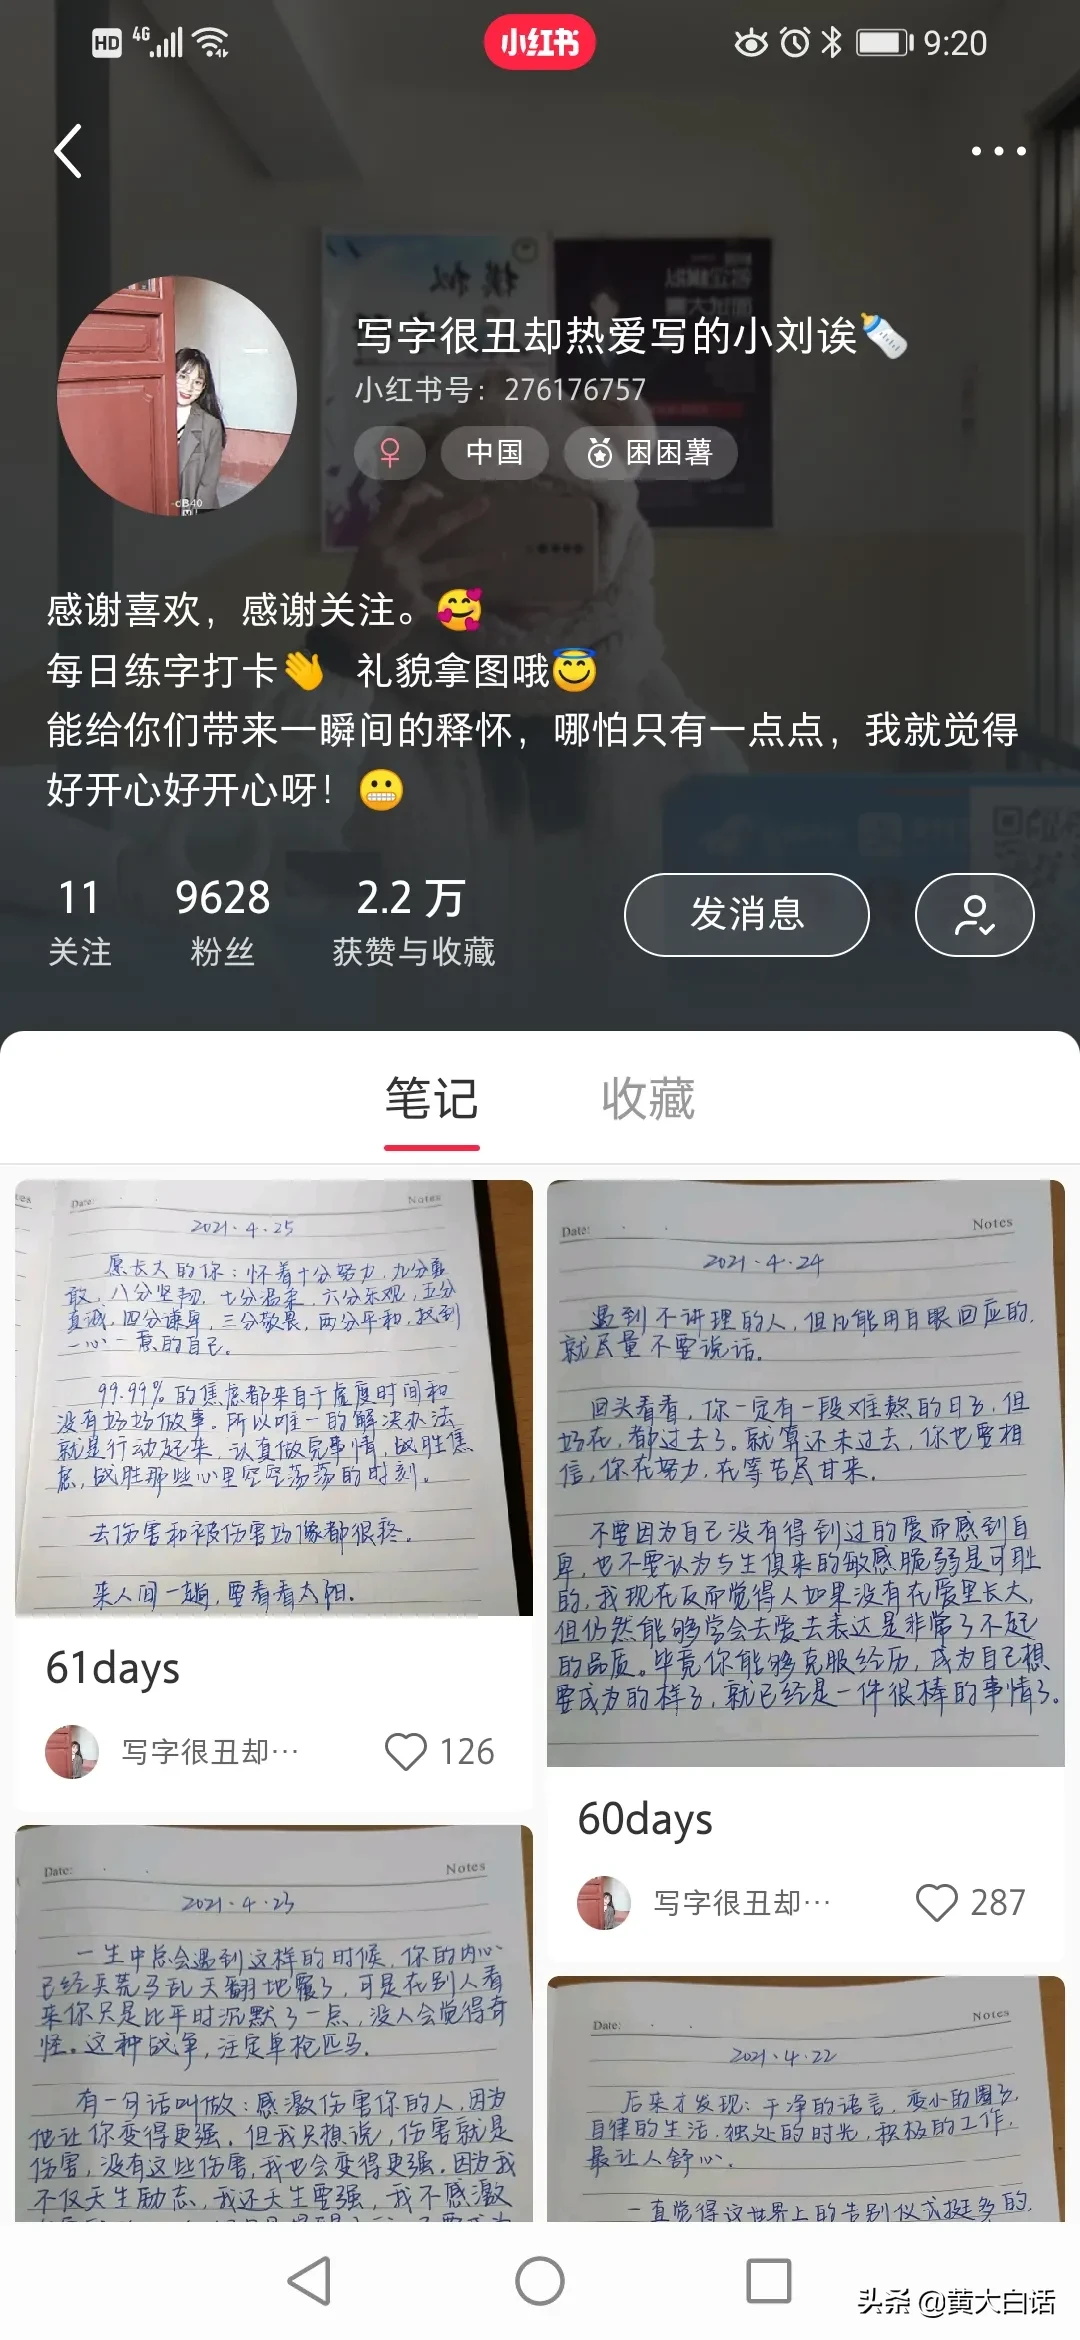 HD 4G 小红书 9:20
模拟
写字很丑却热爱写的小刘诶
小红书号：276176757
中国 困困薯
感谢喜欢，感谢关注。
每日练字打卡 礼貌拿图哦
能给你们带来一瞬间的释怀，哪怕只有一点点，我就觉得
好开心好开心呀！
11 9628 2.2 万
关注 粉丝 获赞与收藏
发消息
笔记 收藏
Date: Notes
2021.4.25
愿长大的你：怀着十分努力，九分勇
敢，八分坚韧，七分温柔，六分乐观，五分
真诚，四分谦卑，三分敬畏，两分平和，找到
一心一意的自己。
99.99% 的焦虑都来自于虚度时间和
没有好好做事。所以唯一的解决办法
就是行动起来，认真做完事情，战胜焦
虑，战胜那些心里空空荡荡的时刻。
去伤害和被伤害好像都很疼。
来人间一趟，要看看太阳.
61days
写字很丑却… 126
Date: Notes
2021.4.24
遇到不讲理的人，但凡能用白眼回应的，
就尽量不要说话。
回头看看，你一定有一段难熬的日子，但
好在，都过去了。就算还未过去，你也要相
信，你在努力，在等苦尽甘来.
不要因为自己没有得到过的爱而感到自
卑，也不要认为与生俱来的敏感脆弱是可耻
的，我现在反而觉得人如果没有在爱里长大，
但仍然能够学会去爱去表达是非常了不起
的品质。毕竟你能够克服经历，成为自己想
要成为的样子，就已经是一件很棒的事情了。
60days
写字很丑却… 287
Date: Notes
2021.4.23
一生中总会遇到这样的时候，你的内心
已经兵荒马乱天翻地覆了，可是在别人看
来你只是比平时沉默了一点，没人会觉得奇
怪。这种战争，注定单枪匹马.
有一句话叫做：感激伤害你的人，因为
他让你变得更强。但我只想说，伤害就是
伤害，没有这些伤害，我也会变得更强。因为我
不仅天生励志，我还天生要强，我不感激
Date: Notes
2021.4.22
后来才发现：干净的语言，变小的圈子，
自律的生活，独处的时光，积极的工作，
最让人舒心.
一直觉得这世界上的告别仪式挺多的，
头条 @黄大白话